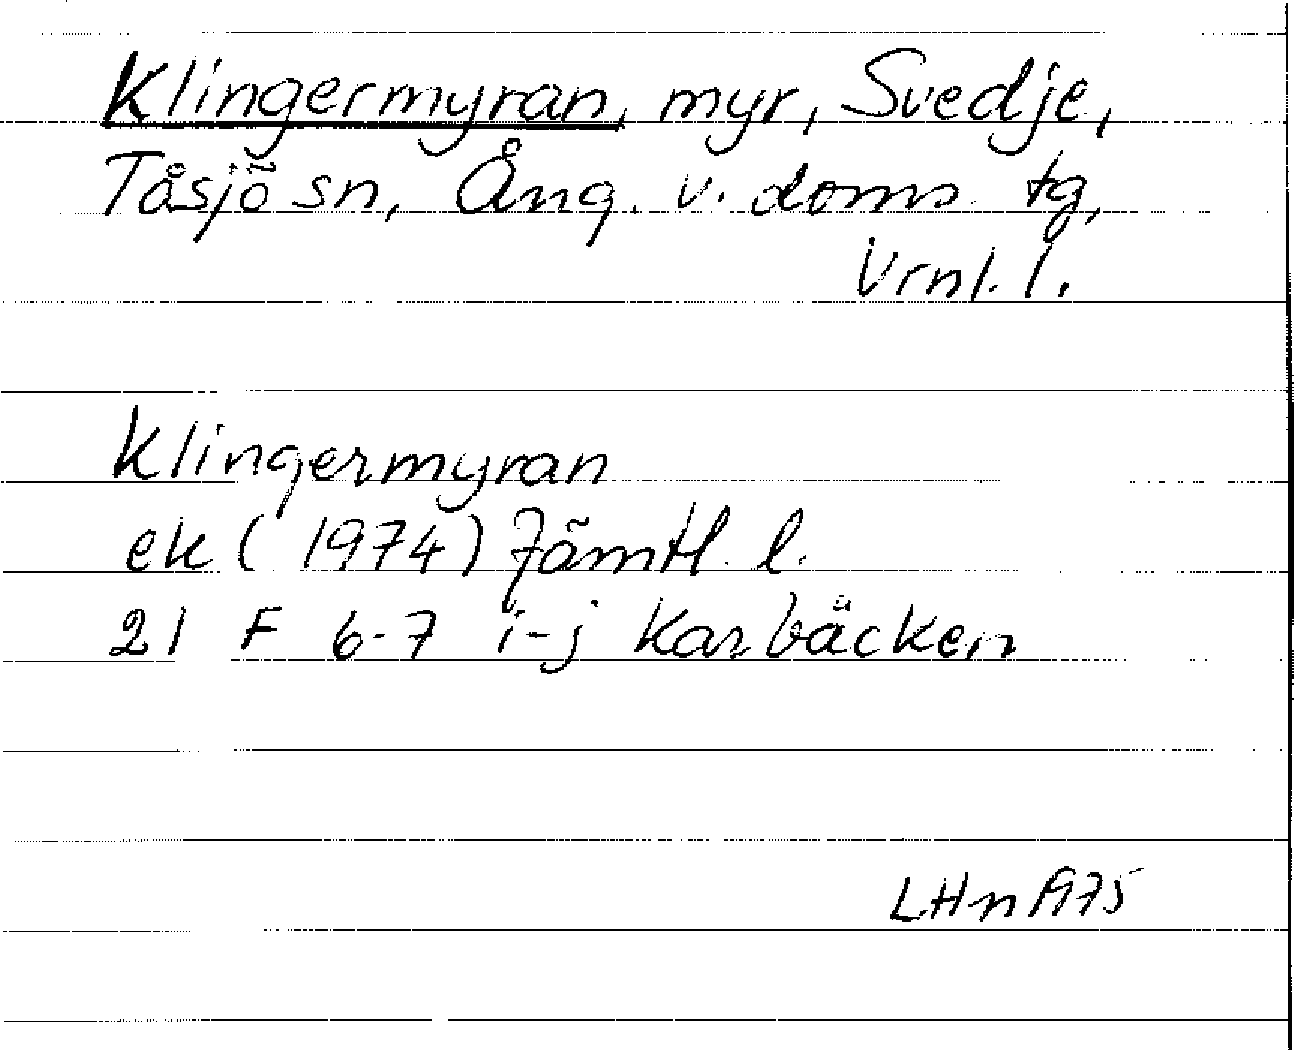 Klingermyran, myr, Svedje,
Tåsjö sn, Ång. v. doms. tg,
Vrnl. l.
Klingermyran
ek (1974) Jämtl. l.
21 F 6-7 i-j Karbäcken
LHn 1975